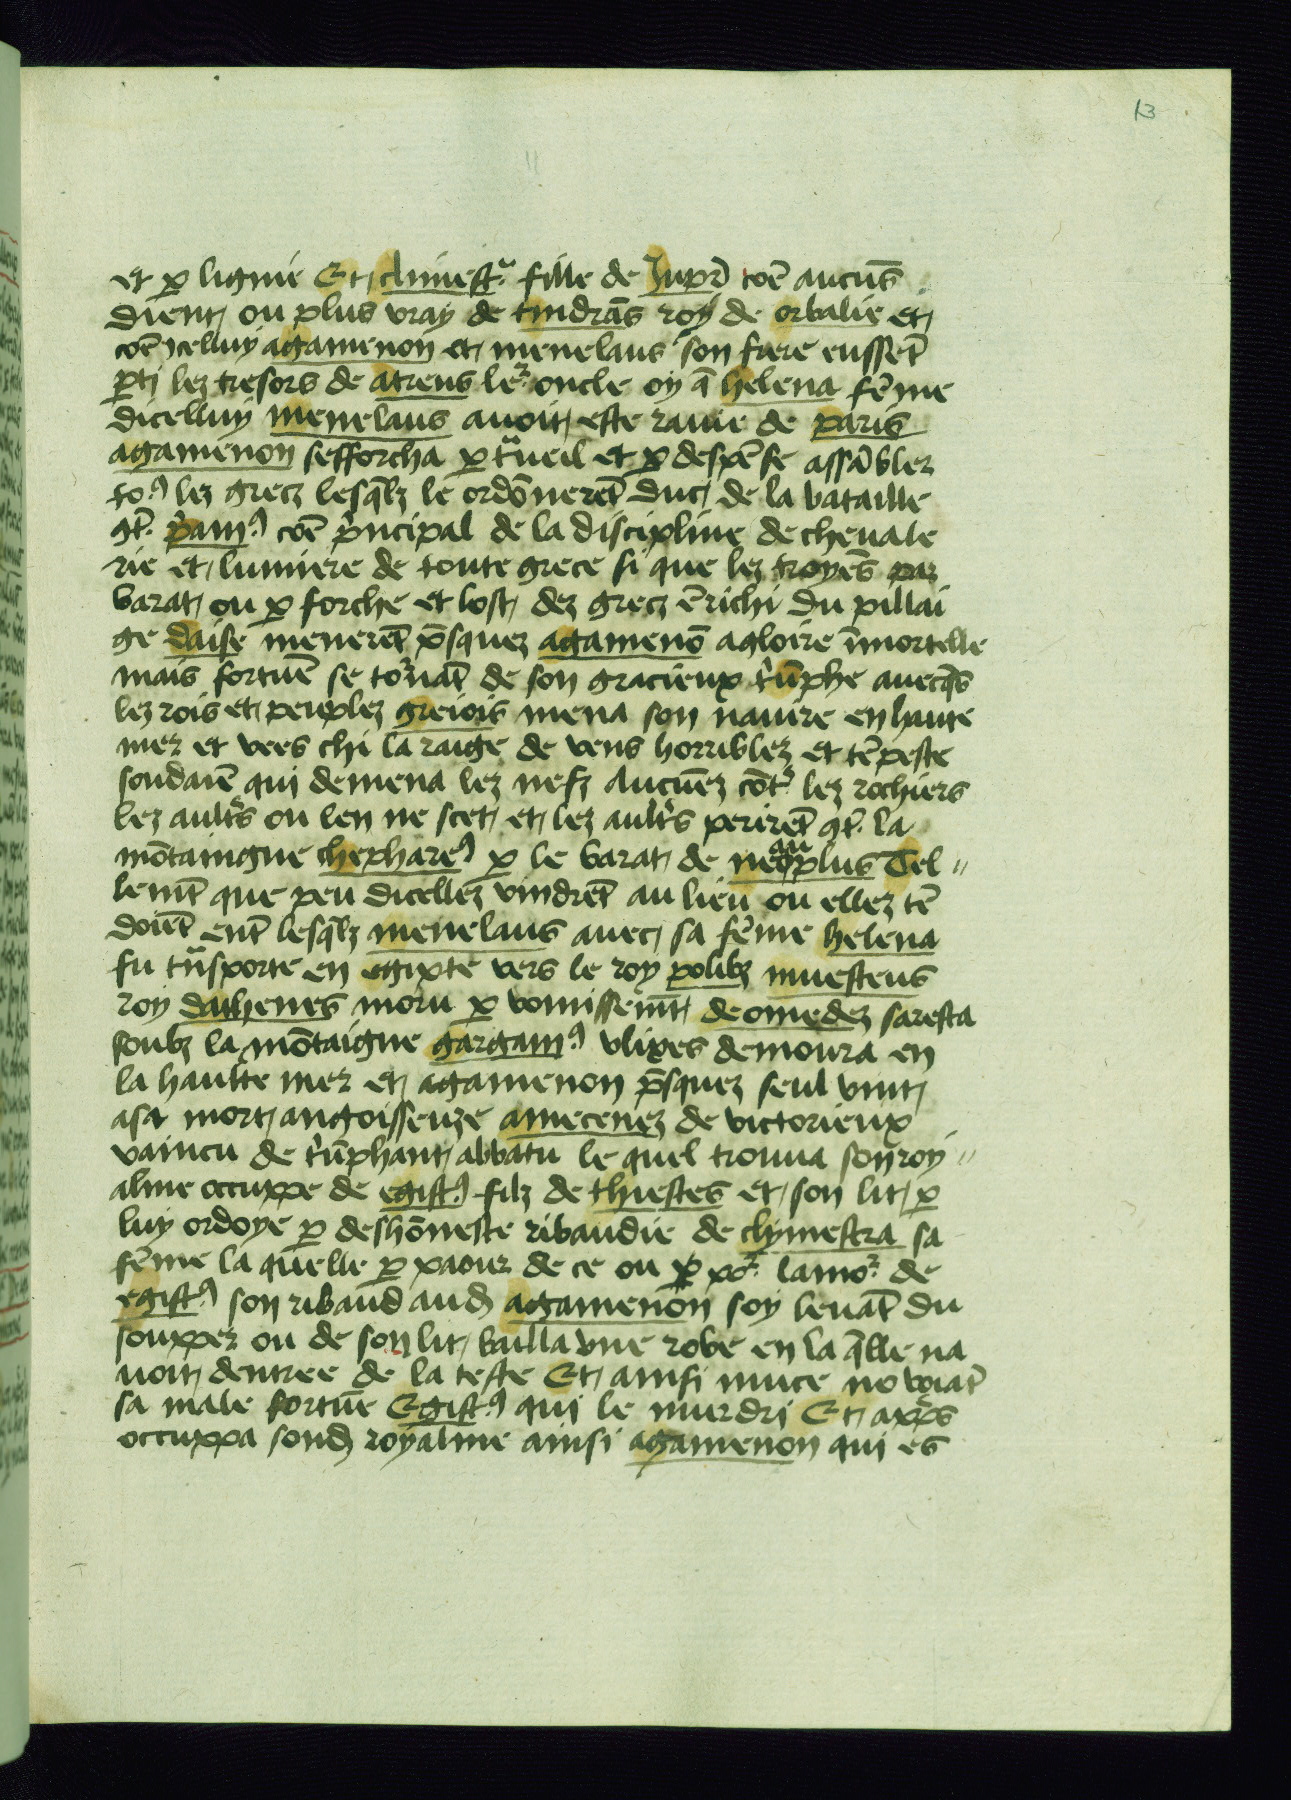 13
et ꝑ lignie Et climestᵃ fille de Jupi͛ cōe aucūs
dient ou plus vray de tindrās roy de orbalie et
cōe icelluy agamenon et menelaus son frere eussēt
ꝑti lez tresors de atreus le͛ oncle oy q̄ helena fēme
dicelluy menelaus avoit este ravie de paris
agamenon sefforcha ꝑ tᵃveil et ꝑ despēse assābler
toꝰ lez grecz lesq̄lz le ordōnerēt duc de la bataille
ꝯt̾ p̾amꝰ cōe p̾ncipal de la discipline de chevale
rie et lumiere de toute grece si que lez troyēs par
barat ou ꝑ forche et lost dez grecz ērichi du pillai
ge daise menerēt p̄squez agamenō a gloire īmortelle
mais fortūe se to᷑nāt de son gracieux t̾ūphe avecq̄s
lez rois et peuplez greiois mena son navire en haute
mer et vees chi la raige de vens horriblez et tēpeste
soudaīe qui demena lez nefz Aucūez cōt̾ lez rochiers
lez ault̾s ou len ne scet et lez ault̾s perirēt ꝯt̾ la
mōtaingne chephareꝰ ꝑ le barat de nauplus Tel〃
lemt̄ que peu dicellez vindrēt au lieu ou ellez tē
doiēt ent̄ lesq̄lz menelaus avec sa fēme helena
fu tᵃ̄sporte en egipte vers le roy polibz muesteus
roy dathenes moru ꝑ vomissemt̄ deomedez saresta
soubz la mōtaigne gargamꝰ vlixes demoura en
la haulte mer et agamenon p̄squez seul vint
a sa mort angoisseuze a mecenez de victorieux
vaincu de t̾ūphant abbatu le quel trouva son roy〃
alme occuppe de egistꝰ filz de thiestes et son lit ꝑ
luy ordoye ꝑ deshōneste ribaudie de clymestra sa
fēme la quelle ꝑ paour de ce ou ꝑ po᷑ lamo᷑ de
egistꝰ son ribaud aud agamenon soy levāt du
soupper ou de son lit bailla vne robe en la q̄lle na
voit dentree de la teste Et ainsi muce no voiāt
sa male fortūe Egistꝰ qui le murdri Et ap̾s
occuppa sond royalme ainsi agamenon qui es